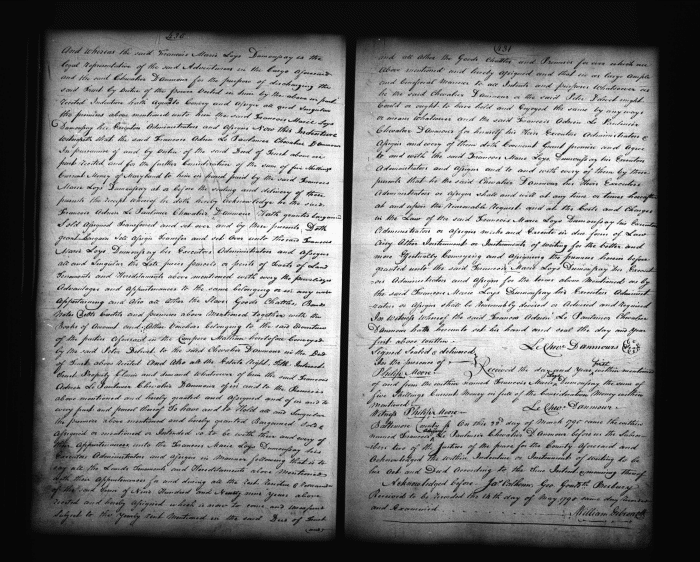 430
And Whereas the said Francois Marie Loys Dumoussay is the
legal Representative of the said Adventurers in the Cargo Aforesaid
and the said Chevalier D'Annour for the purpose of discharging the
said Trust by virtue of the power vested in him by the above in part
recited Indenture both Agreed to Convey and Assign all and Singular
the premises above mentioned unto him the said Francois Marie Loys
Dumoussay his Executors Administrators and Assigns Now this Indenture
Witnesseth that the said Francois Adrien Le Paulmier Chevalier D'Annour
In pursuance of and by virtue of the said Deed of Trust above in
part recited and for the further Consideration of the sum of five Shillings
Current Money of Maryland to him in hand paid by the said Francois
Marie Loys Dumoussay at or before the sealing and delivery of these
presents the receipt whereof he doth hereby acknowledge he the said
Francois Adrien Le Paulmier Chevalier D'Annour Hath granted bargained
Sold Assigned Transferred and set over and by these presents Doth
grant Bargain Sell Assign Transfer and set Over unto the said Francois
Marie Loys Dumoussay his Executors Administrators and Assigns
all and Singular the Lots pieces parcels or parts of Lands of Land
Tenements and Hereditaments above mentioned with every the privileges
Advantages and Appurtenances to the same belonging or in any wise
Appertaining and Also all other the Slaves Goods Chattles Bonds
Notes Debts Contracts and premises above Mentioned Together with the
Books of Account and Other Vouchers belonging to the said
of the parties Aforesaid in the heretofore Conveyed
by the said Peter Delivet to the said Chevalier D'Annour in the Deed
of Trust above recited And Also all the Estate Right Title Interest
Trust Property Claim and demand Whatsoever of him the said Francois
Adrien Le Paulmier Chevalier D'Annour of in and to the Premises
above mentioned and hereby granted and Assigned and of in and to
every part and parcel thereof To have and to Hold all and Singular
the premises above mentioned and hereby granted Bargained Sold &
Assigned or mentioned or intended so to be with their and every of
their appurtenances unto the Francois Marie Loys Dumoussay his
Executors Administrators and Assigns in Manner following that is to
say all the Lands Tenements and Hereditaments above Mentioned
with their Appurtenances for and during all the rest Residue & Remainder
of the said term of Nine Hundred and Ninety nine Years above
recited and hereby Assigned which is now to come and unexpired
Subject to the Yearly rent Mentioned in the said Deed of Trust
and
431
and all other the Goods Chattles and Premises for ever which are
above mentioned and hereby Assigned and that in as large ample
and beneficial Manner to all Intents and purposes Whatsoever as
he the said Chevalier D'Annour or the said Peter Delivet might
Could or ought to have held and Enjoyed the same by any ways
or means Whatsoever and the said Francois Adrien Le Paulmier
Chevalier D'Annour for himself his Heirs Executors Administrators &
Assigns and every of them doth Covenant Grant promise and agree
to and with the said Francois Marie Loys Dumoussay his Executors
Administrators and Assigns and to and with every of them by these
presents that he the said Chevalier D'Annour his Heirs Executors
Administrators or Assigns shall and will at any time or times hereafter
at and upon the Reasonable Request and at the Costs and Charges
in the Law of the said Francois Marie Loys Dumoussay his Executors
Administrators or Assigns make and Execute in due form of Law
Any Other Instrument or Instruments of writing for the better and
more effectually Conveying and Assigning the premises herein before
granted unto the said Francois Marie Loys Dumoussay his Executors
Administrators and Assigns for the Uses above Mentioned as by
the said Francois Marie Loys Dumoussay his Executors Administrators
or Assigns shall be Reasonably devised or Advised and Required
In Witness Whereof the said Francois Adrien Le Paulmier Chevalier
D'Annour hath hereunto set his hand and seal the day and Year
first above written
Signed Sealed & delivered Le Chevr D'Annour
In the presence of
Philip Moore
Received the day and Year first within mentioned
of and from the within named Francois Marie Loys Dumoussay the sum of
five Shillings Current Money in full of the Consideration Money within
mentioned
Witness Philip Moore Le Chevr D'Annour
Baltimore County ss On this 23d day of March 1790 came the within
named Francois Le Paulmier Chevalier D'Annour before us the Subscribers
two of the Justices of the peace for the County Aforesaid and
Acknowledged the within Indenture or Instrument of writing to be
his Act and Deed According to the true Intent meaning thereof
Acknowledged before Jas Calhoun Geo Gouldsh Presbury
Received to be recorded the 14th day of May 1790 same day recorded
and Examined
William Gibson Clk